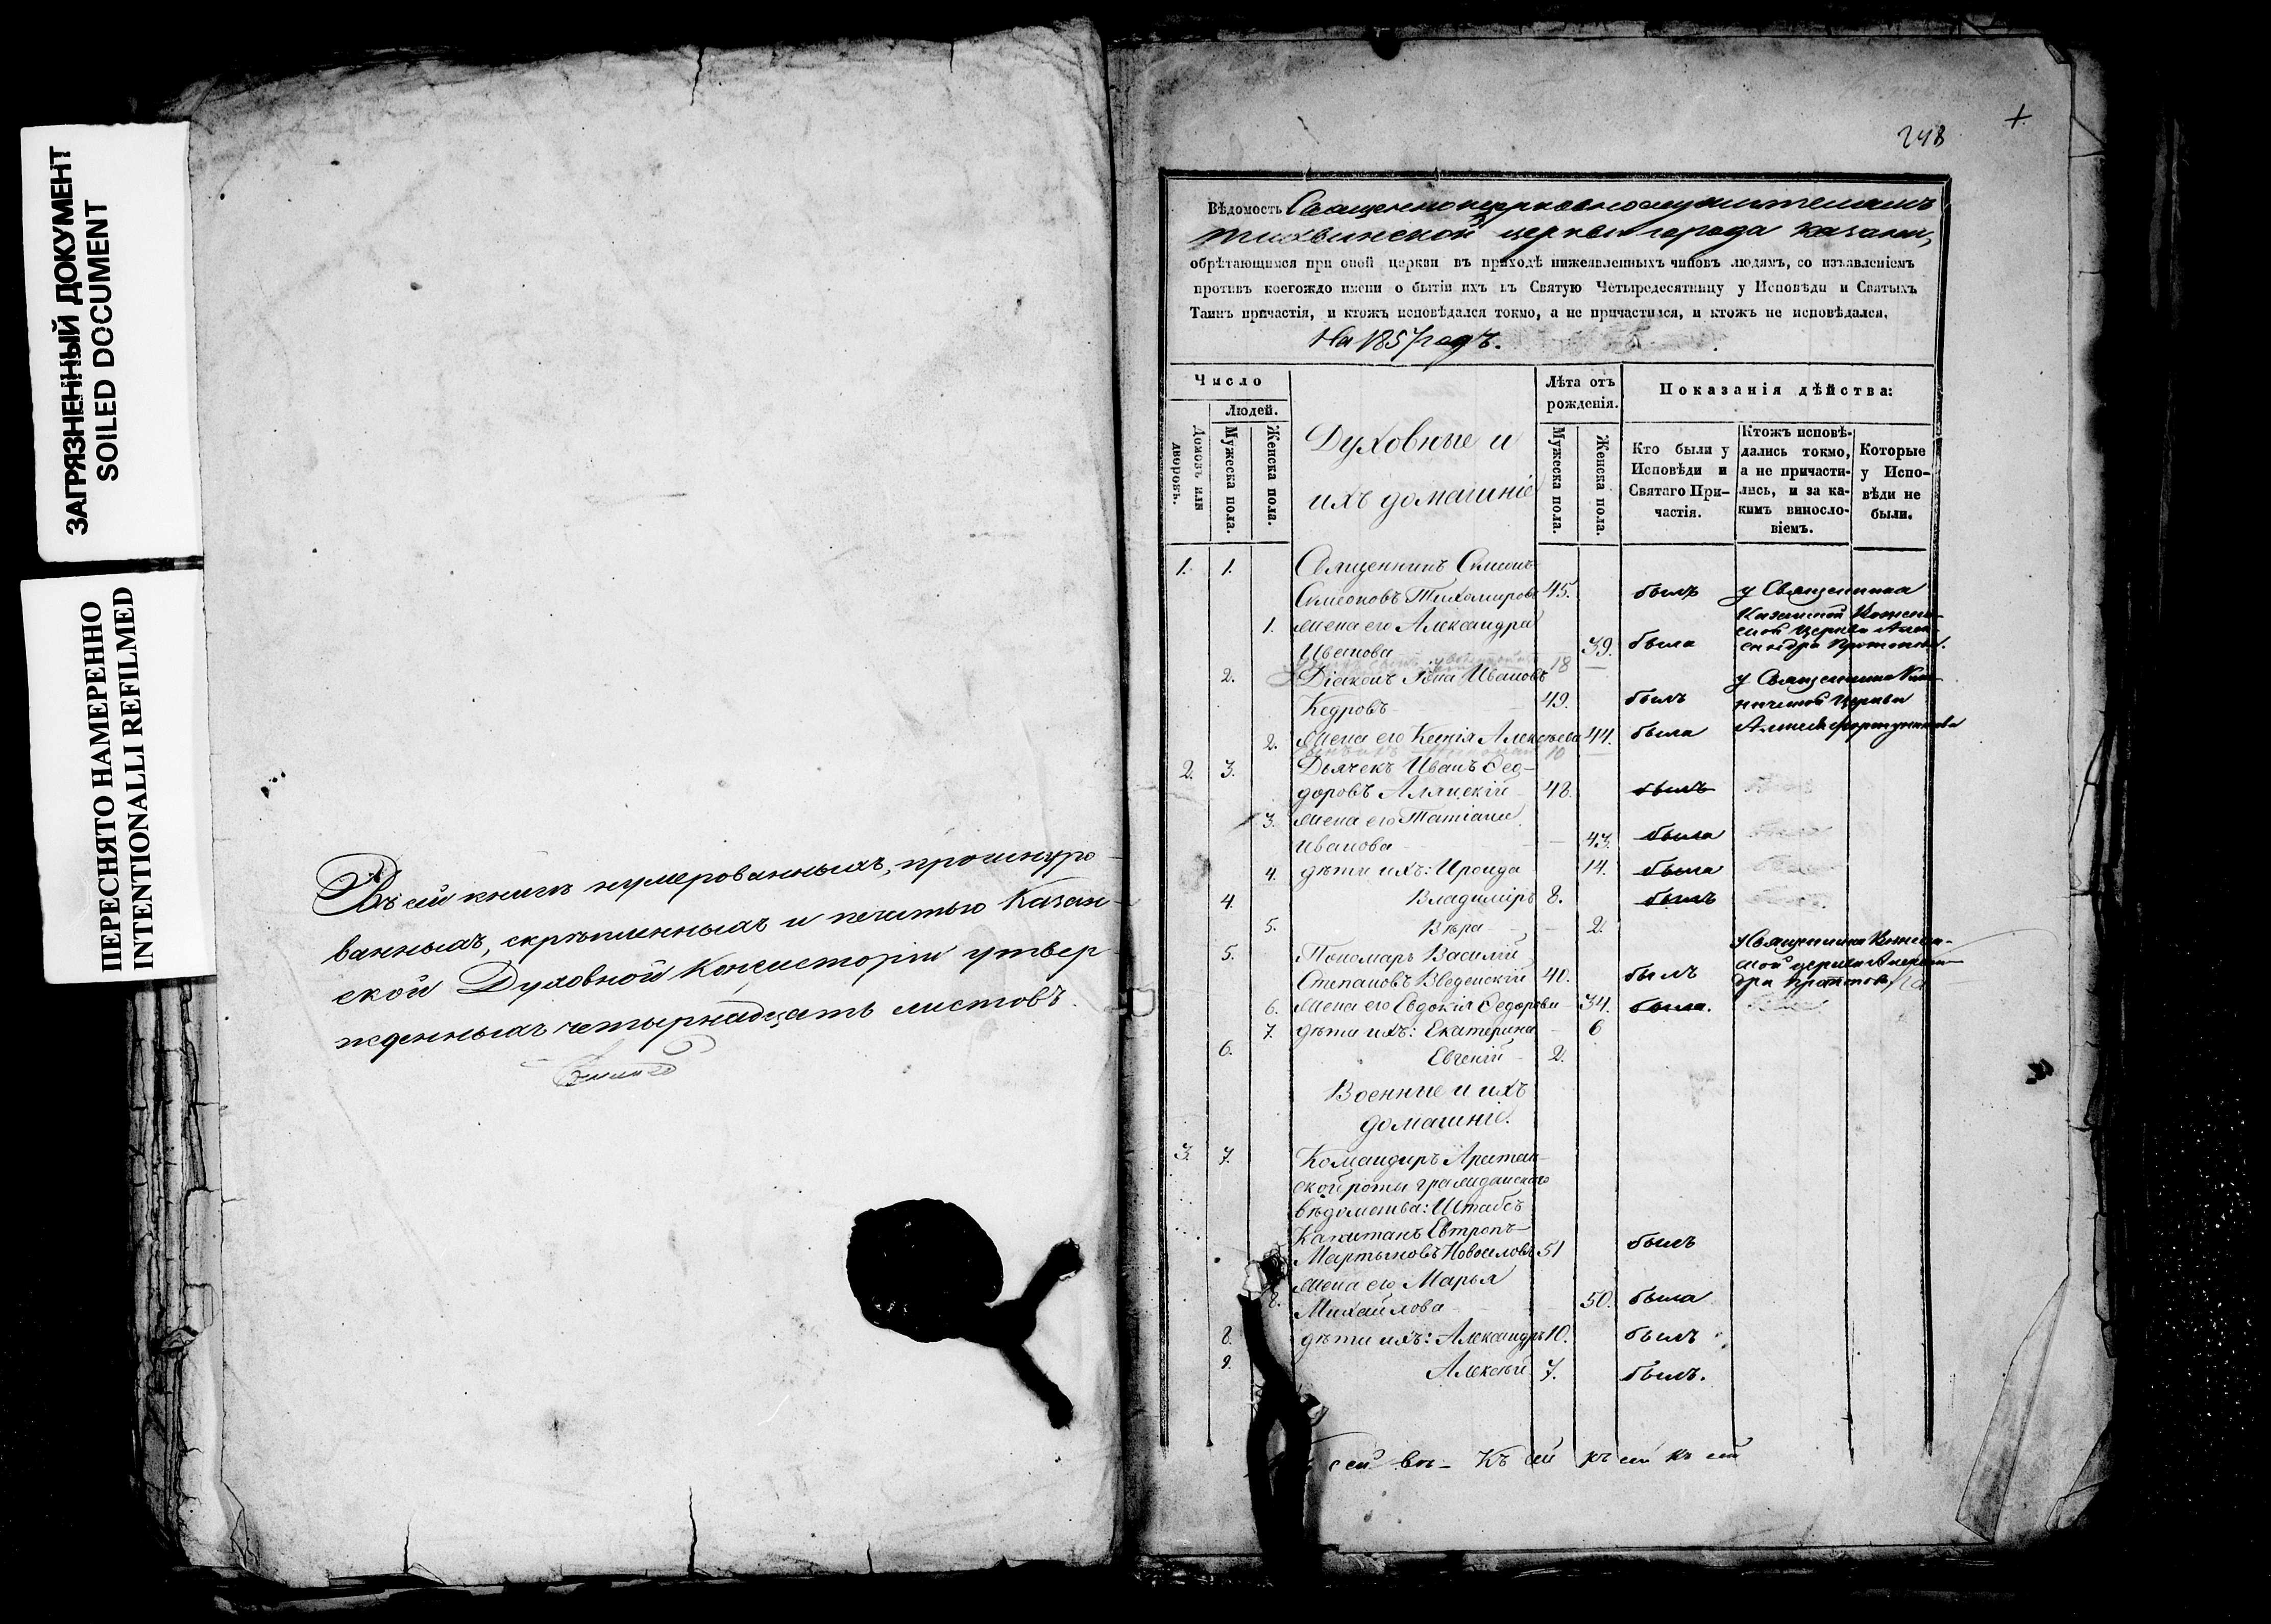 ЗАГРЯЗНЕННЫЙ ДОКУМЕНТ
SOILED DOCUMENT
ПЕРЕСНЯТО НАМЕРЕННО
INTENTIONALLI REFILMED
Въ сей книгѣ нумерованныхъ, прошнуро-
ванныхъ, скрѣпленныхъ и печатью Казан-
ской Духовной Консисторіи утвер-
жденныхъ четырнадцать листовъ.
248
Вѣдомость Священноцерковнослужителямъ
Тихвинской церкви города Казани,
обрѣтающимся при оной церкви въ приходѣ нижеявленныхъ чиновъ людямъ, со изъявленіемъ
противъ коегождо имени о бытіи ихъ въ Святую Четыредесятницу у Исповѣди и Святыхъ
Таинъ причастія, и ктожъ исповѣдался токмо, а не причастился, и ктожъ не исповѣдался.
На 1857 годъ.
Число
Людей.
Домовъ или дворовъ.
Мужеска пола.
Женска пола.
Духовные и
ихъ домашніе
Лѣта отъ
рожденія.
Мужеска пола.
Женска пола.
Показанія дѣйства:
Кто были у
Исповѣди и
Святаго При-
частія.
Ктожъ исповѣ-
дались токмо,
а не причасти-
лись, и за ка-
кимъ винословіемъ.
Которые
у Испо-
вѣди не
были.
1. 1. Священникъ Симеонъ
Симеоновъ Тихомировъ 45. былъ у Священника
Казанской
1. жена его Александра
Иванова 39. была
18
2. Діаконъ Іона Ивановъ у Священника
Кедровъ 49. былъ Церкви
2. Жена его Ксенія Алексѣева 44. была
10
2. 3. Дьячекъ Иванъ Ѳео-
доровъ 48. былъ
3. жена его Татіана
Иванова 43. была
4. дѣти ихъ: Ираида 14. была
4. Владиміръ 8. былъ
5. Вѣра 2.
5. Пономарь Василій у Священника
Степановъ Введенскій 40. былъ
6. Жена его Евдокія Ѳедорова 34. была.
7. дѣти ихъ: Екатерина 6
6. Евгеній 2.
Военные и ихъ
домашніе.
3. 7. Командиръ Арестан-
ской роты гражданскаго
вѣдомства: Штабсъ
Капитанъ Евтропъ
Мартыновъ Новоселовъ 51 былъ
8. жена его Марья
Михайлова 50. была
8. дѣти ихъ: Александръ 10. былъ
9. Алексѣй 7. былъ.